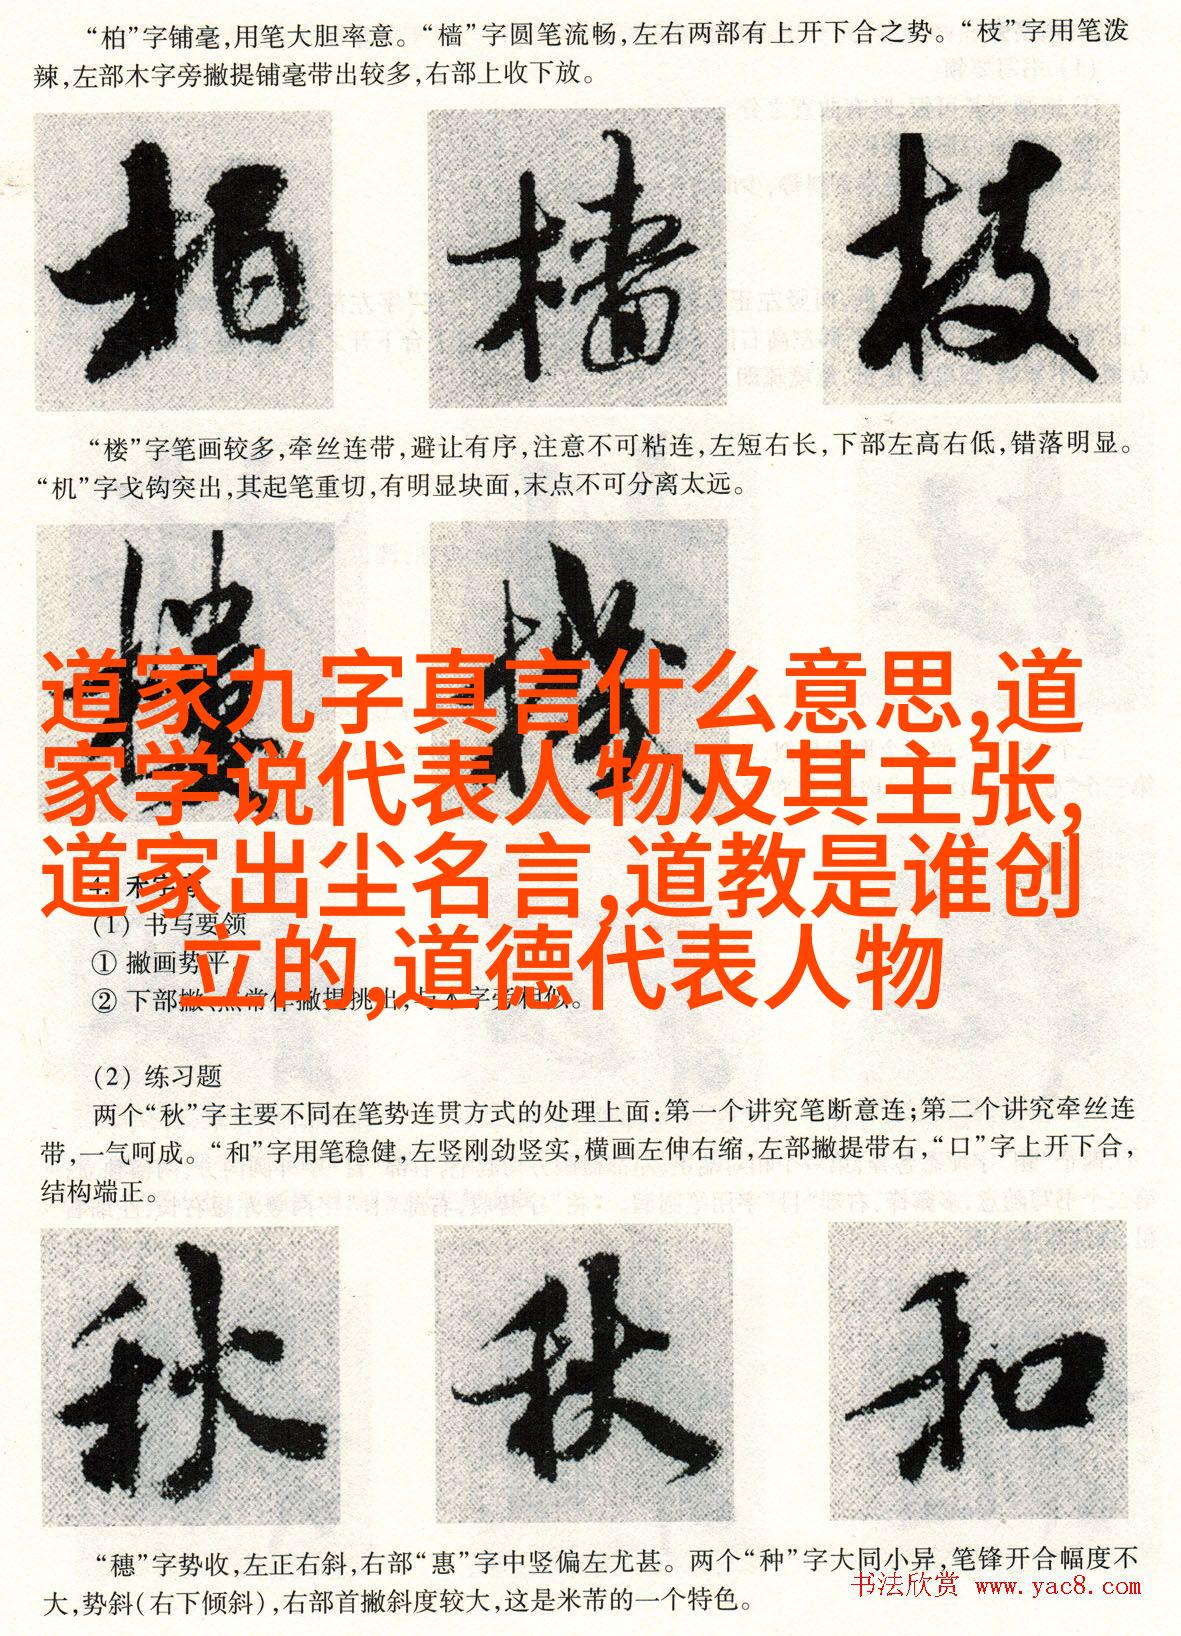 “柏”字铺毫,用笔大胆率意。“樯”字圆笔流畅,左右两部有上开下合之势。“枝”字用笔泼
辣,左部木字旁撇提铺毫带出较多,右部上收下放。
柏 樯 枝
“楼”字笔画较多,牵丝连带,避让有序,注意不可粘连,左短右长,下部左高右低,错落明显。
“机”字戈钩突出,其起笔重切,有明显块面,末点不可分离太远。
道家九字真言什么意思,道
家学说代表人物及其主张,
道家出尘名言,道教是谁创
立的,道德代表人物
(1) 书写要领
① 撇画势平。
(2) 练习题
两个“秋”字主要不同在笔势连贯方式的处理上面:第一个讲究笔断意连;第二个讲究牵丝连
带,一气呵成。“和”字用笔稳健,左竖刚劲竖实,横画左伸右缩,左部撇提带右,“口”字上开下合,
结构端正。
秋 秋 和
“穗”字势收,左正右斜,右部“惠”字中竖偏左尤甚。两个“种”字大同小异,笔锋开合幅度不
大,势斜(右下倾斜),右部首撇斜度较大,这是米芾的一个特色。
书法欣赏 www.yac8.com